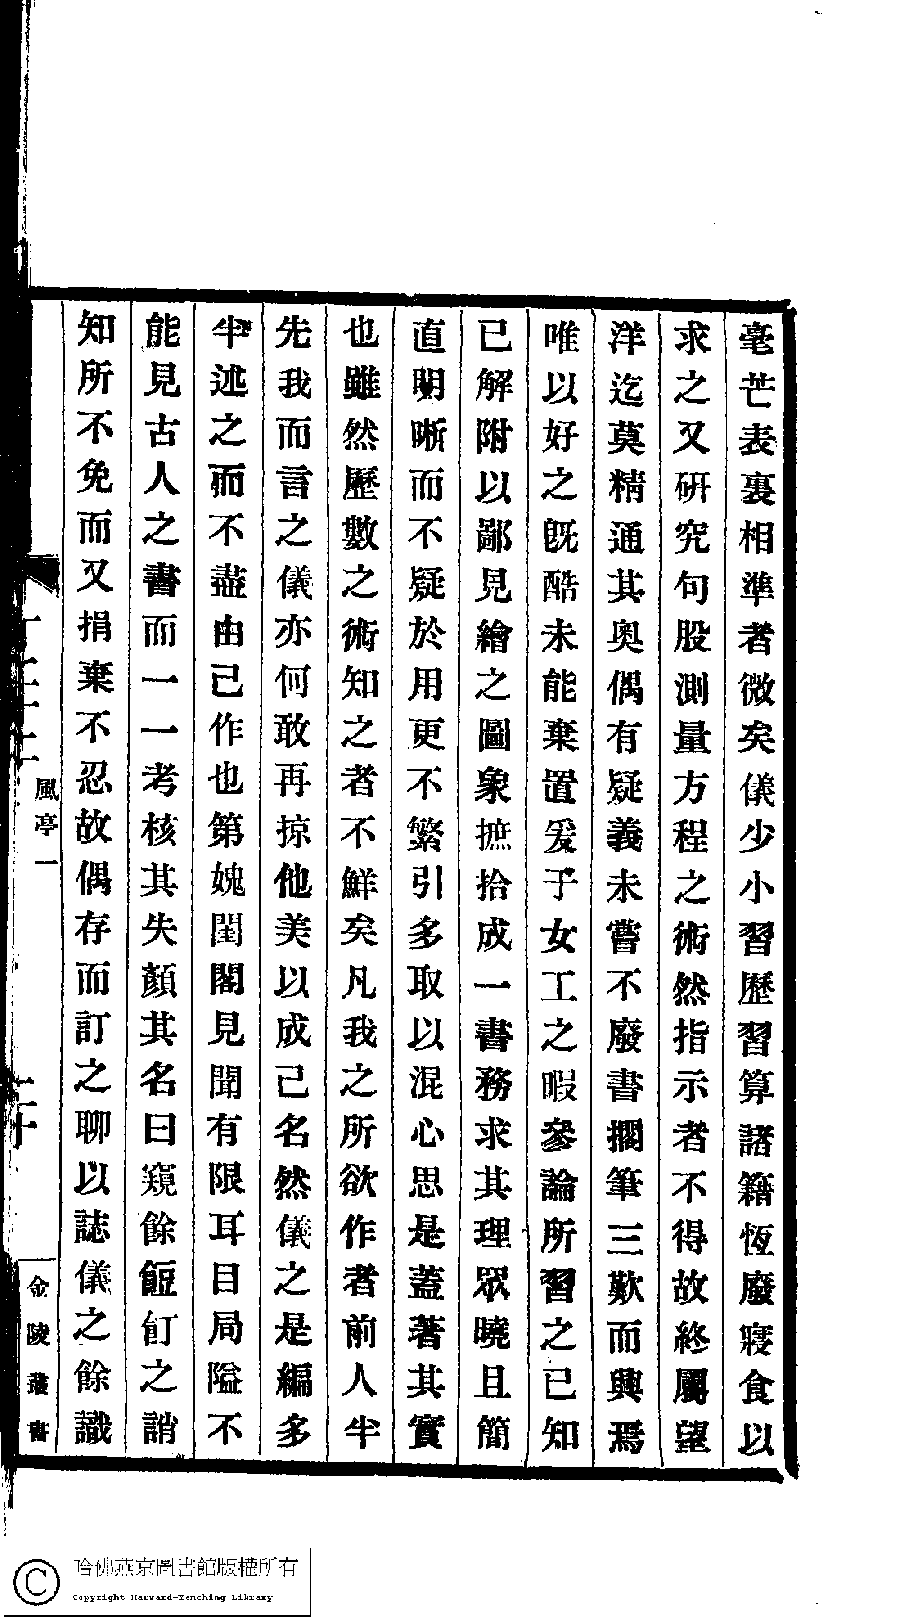 毫芒表裏相準者微矣儀少小習歷習算諸籍恆廢寢食以
求之又研究句股測量方程之術然指示者不得故終屬望
洋迄莫精通其奧偶有疑義未嘗不廢書擱筆三歎而興焉
唯以好之旣酷未能棄置爰于女工之暇參論所習之已知
已解附以鄙見繪之圖象摭拾成一書務求其理眾曉且簡
直明晰而不疑於用更不繁引多取以混心思是蓋著其實
也雖然歷數之術知之者不鮮矣凡我之所欲作者前人半
先我而言之儀亦何敢再掠他美以成己名然儀之是編多
半述之而不盡由己作也第媿閨閣見聞有限耳目局隘不
能見古人之書而一一考核其失顏其名曰窺餘餖飣之誚
知所不免而又捐棄不忍故偶存而訂之聊以誌儀之餘識
風亭一
二十
金陵叢書
哈佛燕京圖書館版權所有
Copyright Harvard-Yenching Library